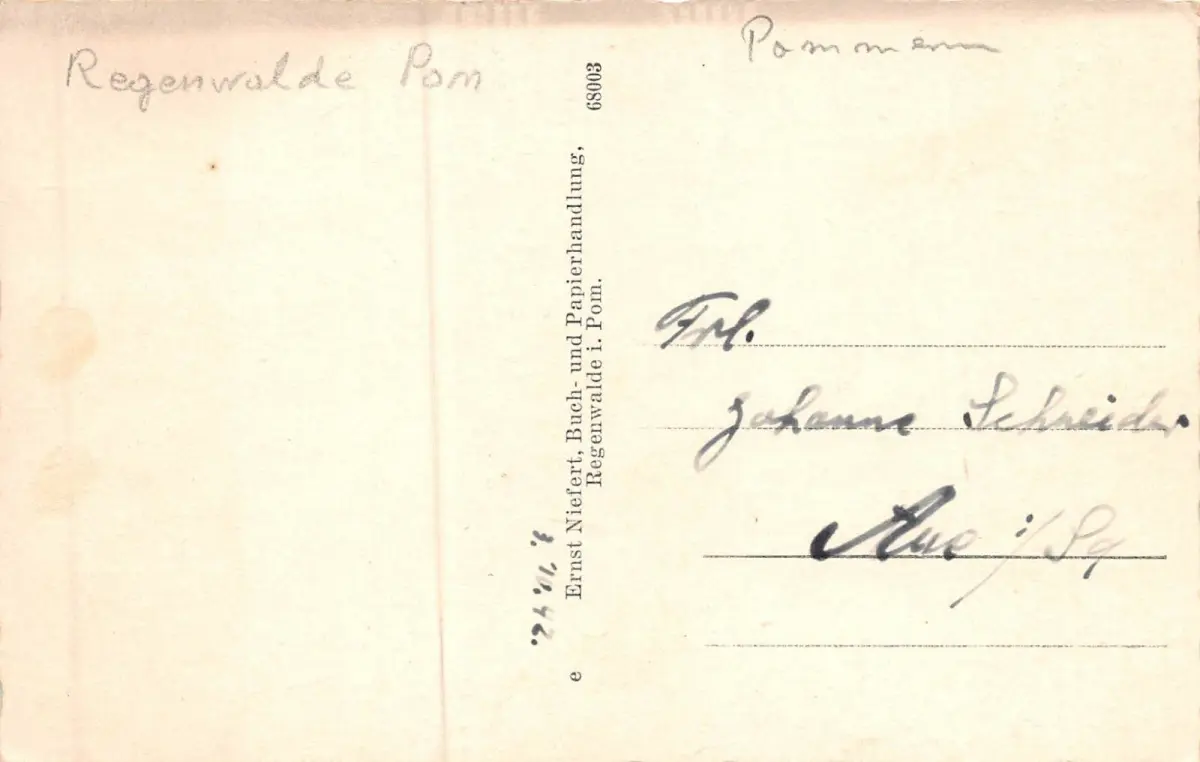 Regenwalde Pom
Pommern
68003
Ernst Niefert, Buch- und Papierhandlung,
Regenwalde i. Pom.
e
3.10.42.
Frl.
Johanne Schneider
Aue i/Sa